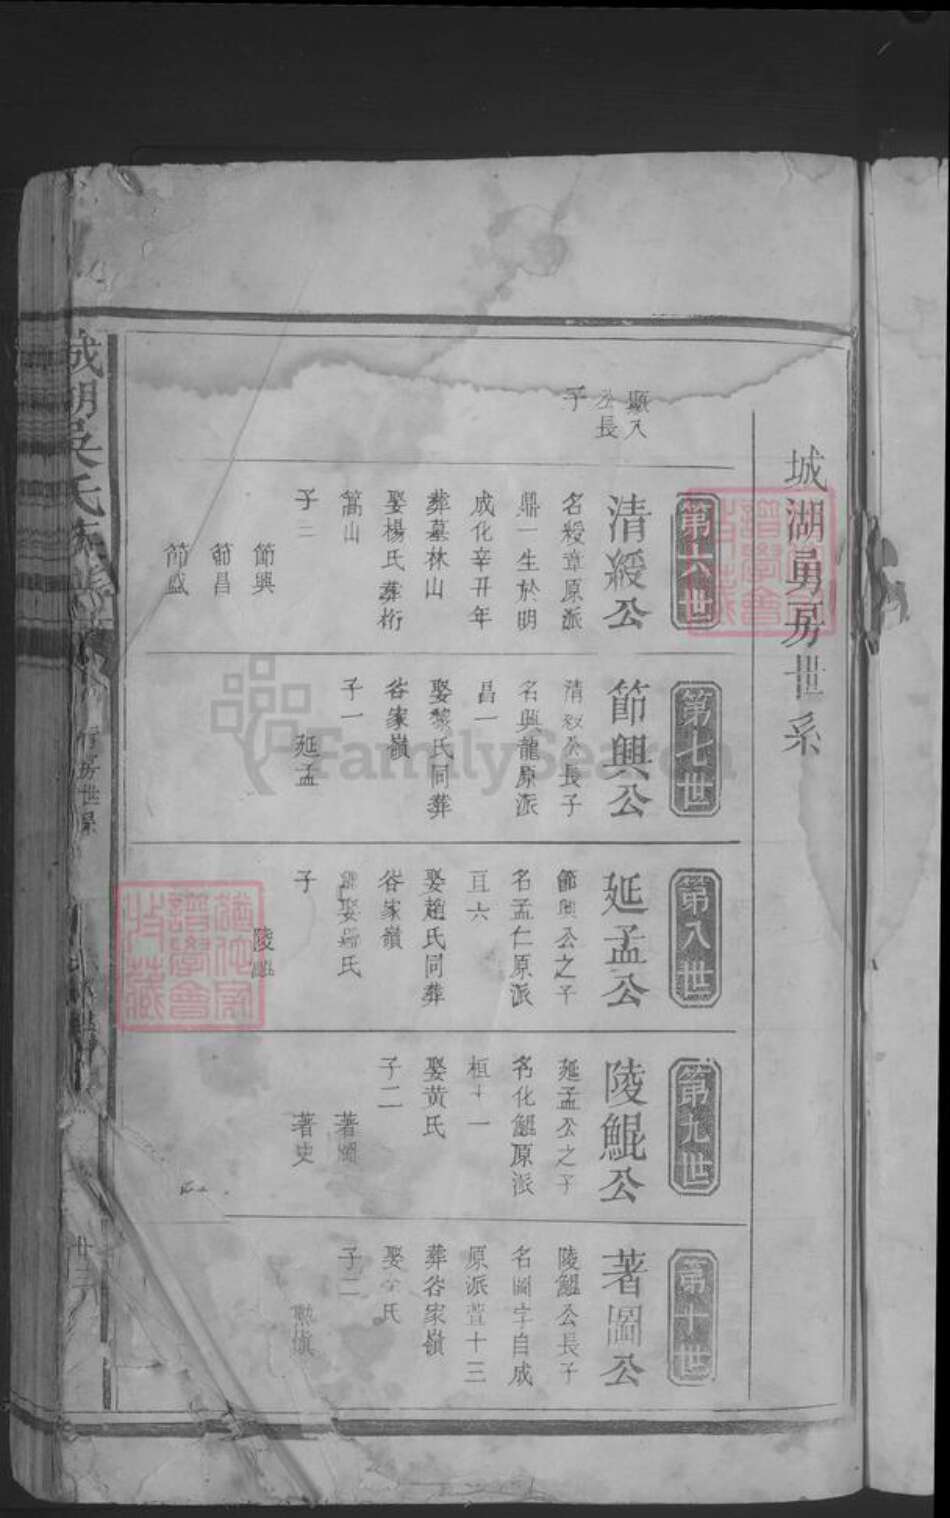 城湖勇房世系
顯八
公長
子
第六世
清綬公
名綬章原派
鼎一生於明
成化辛丑年
葬墓林山
娶楊氏葬桁
篙山
子三
節興
節昌
節盛
第七世
節興公
清綬公長子
名興龍原派
昌一
娶黎氏同葬
谷家嶺
子一
延孟
第八世
延孟公
節興公之子
名孟仁原派
亘六
娶趙氏同葬
谷家嶺
子
陵鯤
第九世
陵鯤公
延孟公之子
名化鯤原派
桓十一
娶黃氏
子二
著圖
著史
第十世
著圖公
陵鯤公長子
名圖字自成
原派萱十三
葬谷家嶺
子二
城湖吳氏
房世系
廿三
FamilySearch
譜學會
收藏